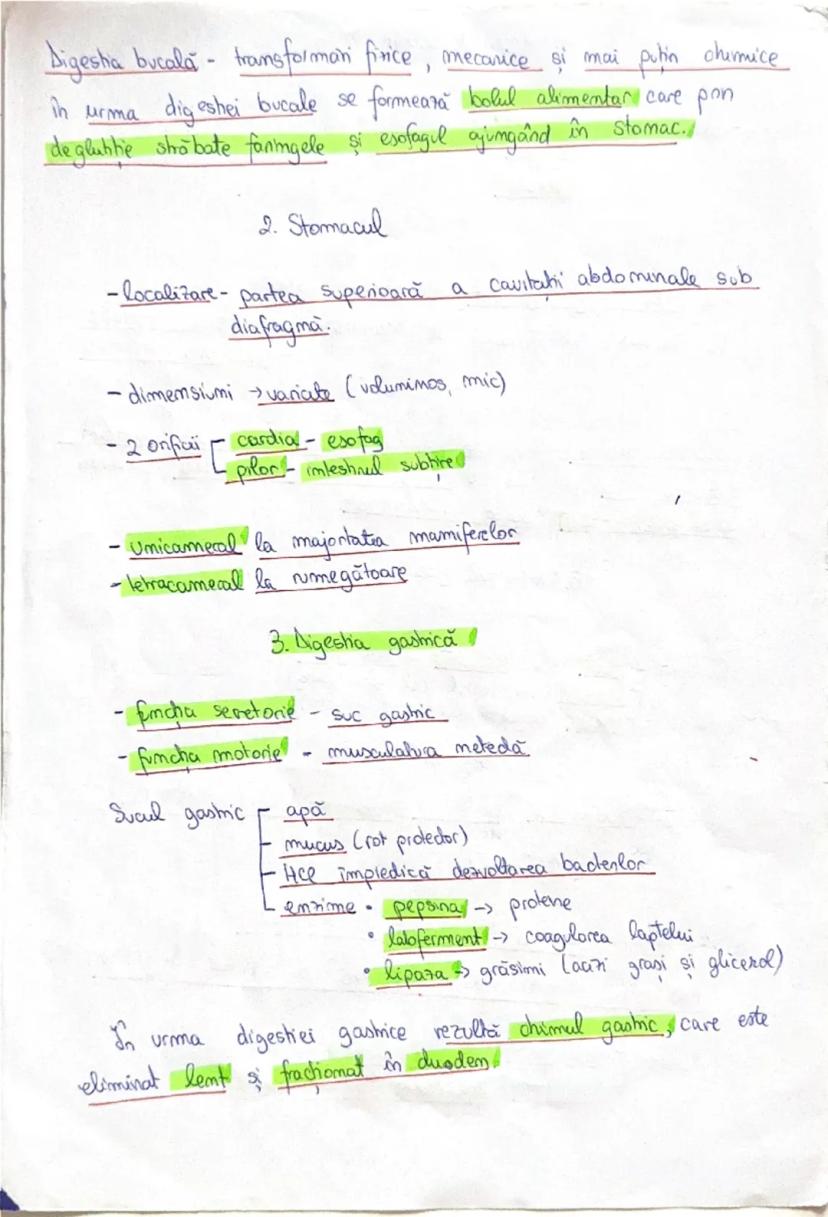 Digestia bucală - transformări fizice, mecanice și mai puțin chimice
în urma digestiei bucale se formează bolul alimentar care prin
deglutiție străbate faringele și esofagul ajungând în stomac.
2. Stomacul
- localizare - partea superioară a cavitații abdominale sub
diafragmă.
- dimensiuni → variate (voluminos, mic)
- 2 orificii cardia - esofag
pilor - intestinul subțire
- Unicameral la majoritatea mamiferelor
- tetracameral la rumegătoare
3. Digestia gastrică
- funcția secretorie - suc gastric
- funcția motorie - musculatura netedă
Sucul gastric apă
mucus (rol protector)
HCl împiedică dezvoltarea bacteriilor
enzime • pepsina → proteine
• labferment → coagularea laptelui
• lipaza → grăsimi (acizi grași și glicerol)
În urma digestiei gastrice rezultă chimul gastric, care este
eliminat lent și fracționat în duoden.